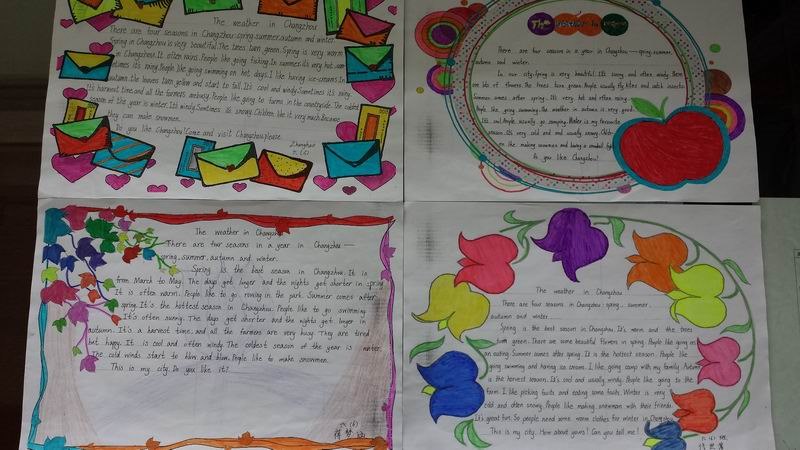 The weather in Changzhou
There are four seasons in Changzhou: spring, summer, autumn and winter.
Spring in Changzhou is very beautiful. The trees turn green. Spring is very warm
in Changzhou. It often rains. People like going fishing. In summer it's very hot, som-
etimes it's rainy. People like going swimming on hot days. I like having ice-creams. In
autumn the leaves turn yellow and start to fall. It's cool and windy. Sometimes it's rainy.
It's harvest time and all the farmers are busy. People like going to farms in the countryside. The coldest
season of the year is winter. It's windy. Sometimes it's snowy. Children like it very much. Because
they can make snowmen.
Do you like Changzhou? Come and visit Changzhou, please.
The weather in
There are four seasons in a year in Changzhou — spring, summer,
autumn and winter.
In our city, Spring is very beautiful. It's sunny and often windy. There
are lots of flowers. The trees turn green. People usually fly kites and catch insects.
Summer comes after spring. It's very hot and often rainy.
People like going swimming. The weather in autumn is very good.
It's cool. People usually go camping. Winter is my favourite
season. It's very cold and and usually snowy. Children
on the making snowmen and having a snowball fight.
Do you like Changzhou?
The weather in Changzhou
There are four seasons in a year in Changzhou —
spring, summer, autumn and winter.
Spring is the best season in Changzhou. It is
from March to May. The days get longer and the nights get shorter in spring.
It is often warm. People like to go rowing in the park. Summer comes after
spring. It's the hottest season in Changzhou. People like to go swimming.
It's often sunny. The days get shorter and the nights get longer in
autumn. It's a harvest time, and all the farmers are very busy. They are tired
but happy. It is cool and often windy. The coldest season of the year is winter.
The cold winds start to blow and blow. People like to make snowmen.
This is my city. Do you like it?
The weather in Changzhou
There are four seasons in Changzhou: spring, summer,
autumn and winter.
Spring is the best season in Changzhou. It's warm and the trees
turn green. There are some beautiful flowers in spring. People like going on
an outing. Summer comes after spring. It is the hottest season. People like
going swimming and having ice creams. I like going camps with my family. Autumn
is the harvest season. It's cool and usually windy. People like going to the
farm. I like picking fruits and eating some fruits. Winter is very
cold and often snowy. People like making snowman with their friends.
It's great fun. So people need some warm clothes for winter in Changzhou.
This is my city. How about yours? Can you tell me?